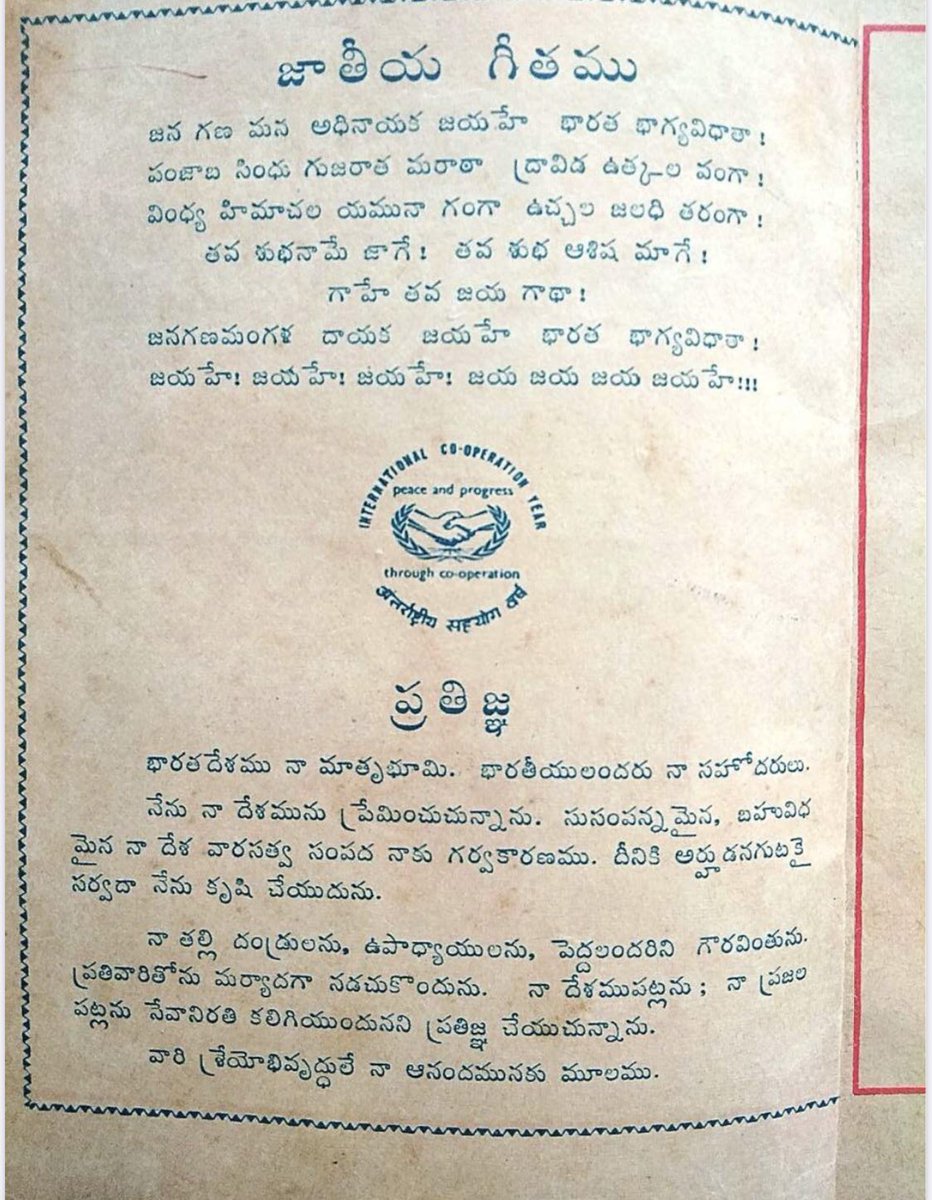 జాతీయ గీతము
జన గణ మన అధినాయక జయహే భారత భాగ్యవిధాతా!
పంజాబ సింధు గుజరాత మరాఠా ద్రావిడ ఉత్కల వంగా!
వింధ్య హిమాచల యమునా గంగా ఉచ్చల జలధి తరంగా!
తవ శుభనామే జాగే! తవ శుభ ఆశిష మాగే!
గాహే తవ జయ గాథా!
జనగణమంగళ దాయక జయహే భారత భాగ్యవిధాతా!
జయహే! జయహే! జయహే! జయ జయ జయ జయహే!!!
INTERNATIONAL CO-OPERATION YEAR
peace and progress
through co-operation
अंतर्राष्ट्रीय सहयोग वर्ष
ప్రతిజ్ఞ
భారతదేశము నా మాతృభూమి. భారతీయులందరు నా సహోదరులు.
నేను నా దేశమును ప్రేమించుచున్నాను. సుసంపన్నమైన, బహువిధ
మైన నా దేశ వారసత్వ సంపద నాకు గర్వకారణము. దీనికి అర్హుడనగుటకై
సర్వదా నేను కృషి చేయుదును.
నా తల్లి దండ్రులను, ఉపాధ్యాయులను, పెద్దలందరిని గౌరవింతును.
ప్రతివారితోను మర్యాదగా నడచుకొందును. నా దేశముపట్లను; నా ప్రజల
పట్లను సేవానిరతి కలిగియుందునని ప్రతిజ్ఞ చేయుచున్నాను.
వారి శ్రేయోభివృద్ధులే నా ఆనందమునకు మూలము.